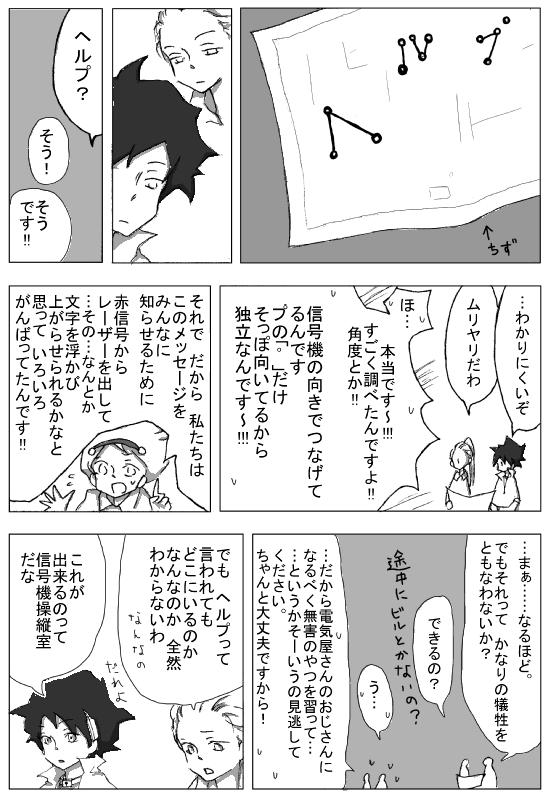 ヘルプ
ちず
ヘルプ？
そう！
そう
です‼
…わかりにくいぞ
ムリヤリだわ
ほ…
本当です～!!!
すごく調べたんですよ‼
角度とか‼
信号機の向きでつなげて
るんです
プの「。」だけ
そっぽ向いてるから
独立なんです～!!!
それで　だから　私たちは
このメッセージを
みんなに
知らせるために
赤信号から
レーザーを出して
…その…なんとか
文字を浮かび
上がらせられるかなと
思って　いろいろ
がんばってたんです‼
…まぁ……なるほど。
でもそれって　かなりの犠牲を
ともなわないか？
できるの？
途中にビルとかないの？
う…
…だから電気屋さんのおじさんに
なるべく無害のやつを習って…
…というかそーいうの見逃して
ください。
ちゃんと大丈夫ですから！
でも　ヘルプって
言われても
どこにいるのか
なんなのか　全然
わからないわ
なんなの
だれよ
これが
出来るのって
信号機操縦室
だな